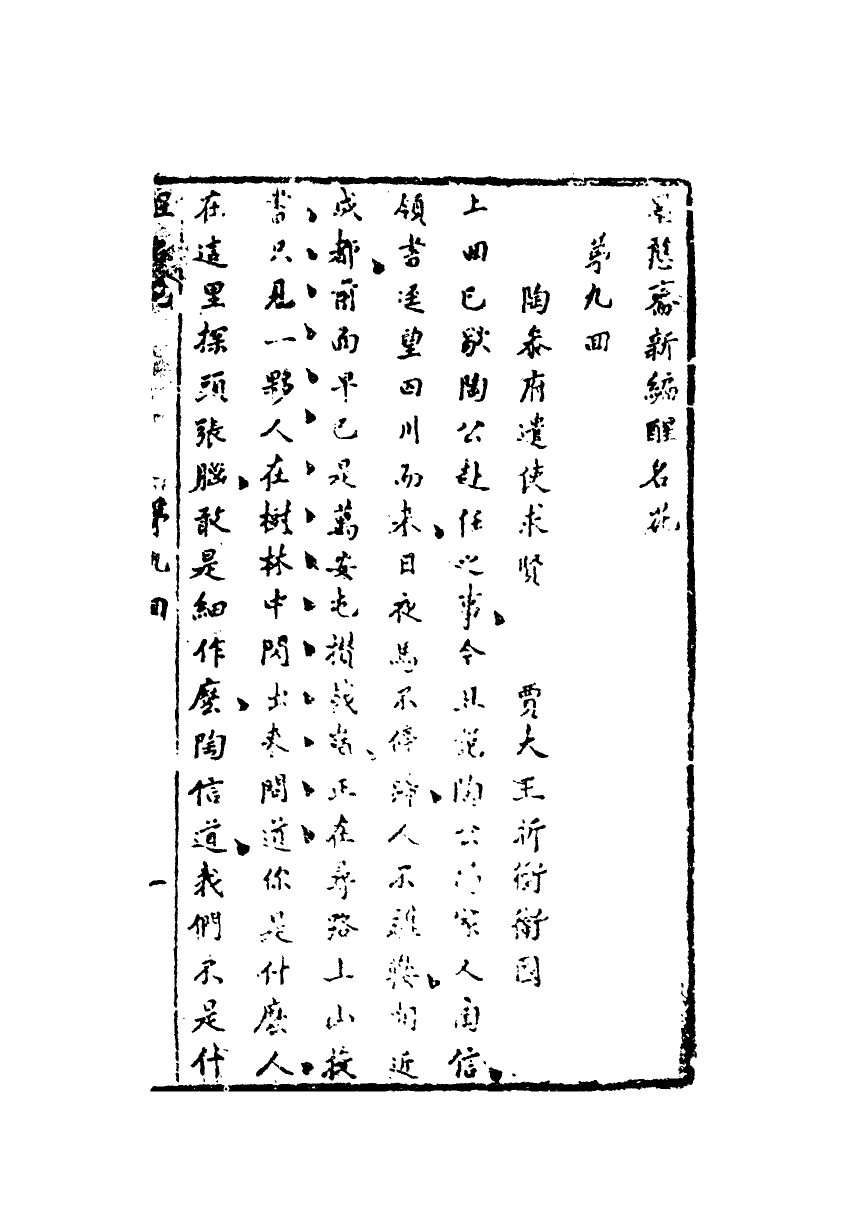 墨憨齋新編醒名花
第九回
陶叅府遣使求賢 賈大王折衝衛國
上回已敘陶公赴任之事今且說陶公的家人陶信
領書逕望四川而來日夜馬不停蹄人不離鞍相近
成都前面早已是萬安屯攢戟嵓正在尋路上山投
書只見一夥人在樹林中閃出來問道你是什麽人
在這里探頭張腦敢是細作麽陶信道我們不是什
醒名花
第九回
一